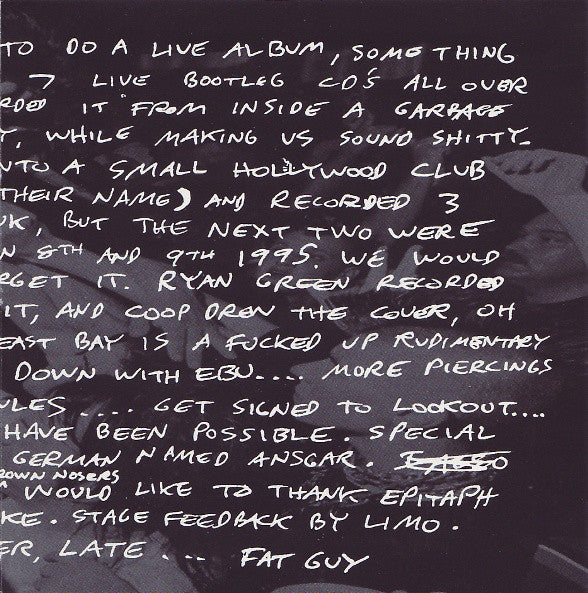 TO DO A LIVE ALBUM, SOMETHING
7 LIVE BOOTLEG CD'S ALL OVER
RDED IT "FROM INSIDE A GARBAGE
Y, WHILE MAKING US SOUND SHITTY.
NTO A SMALL HOLLYWOOD CLUB
THEIR NAME) AND RECORDED 3
UK, BUT THE NEXT TWO WERE
N 8TH AND 9TH 1995. WE WOULD
RGET IT. RYAN GREEN RECORDED
IT, AND COOP DREW THE COVER, OH
EAST BAY IS A FUCKED UP RUDIMENTARY
DOWN WITH EBU.... MORE PIERCINGS
ULES .... GET SIGNED TO LOOKOUT....
HAVE BEEN POSSIBLE. SPECIAL
GERMAN NAMED ANSGAR.
ROWN NOSERS
WOULD LIKE TO THANK EPITAPH
KE. STAGE FEEDBACK BY LIMO.
ER, LATE .... FAT GUY